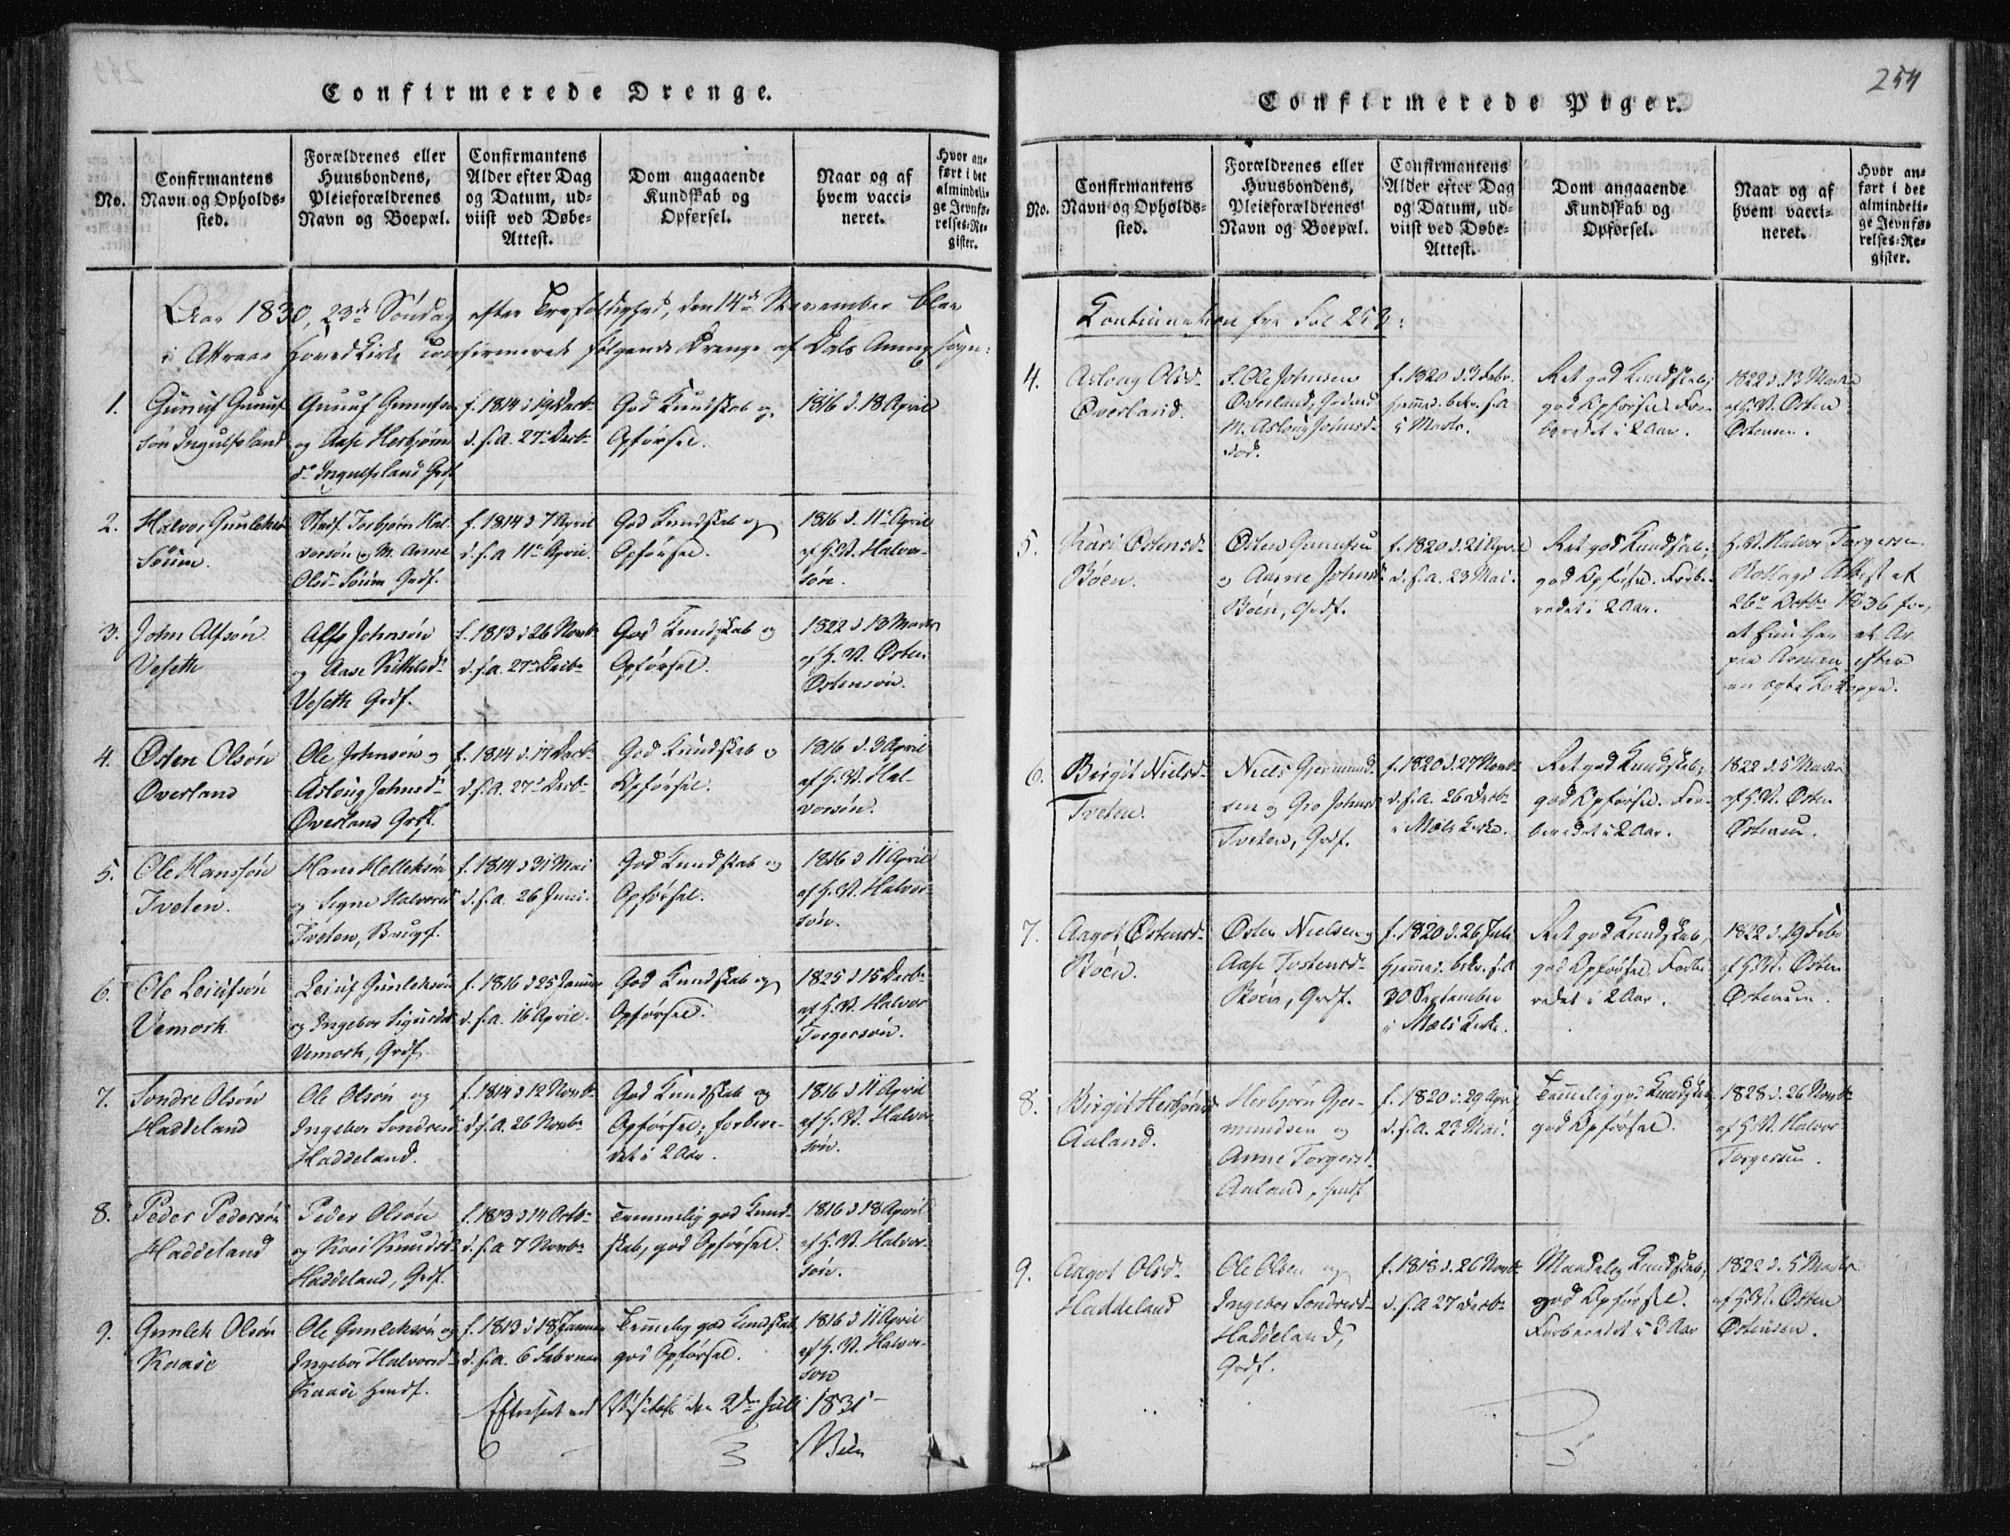 Confirmerede Drenge.
No.
Confirmantens
Navn og Opholds-
sted.
Forældrenes eller
Huusbondens,
Pleieforældrenes
Navn og Boepæl.
Confirmantens
Alder efter Dag
og Datum, ud-
viist ved Døbe-
Attest.
Dom angaaende
Kundskab og
Opførsel.
Naar og af
hvem vacci-
neret.
Hvor an-
ført i det
almindeli-
ge Jevnfø-
relses-Re-
gister.
Aar 1830, 23de Søndag efter Trefoldighed, den 14de November blev
i Attraae Hovedkirke confirmerede følgende Drenge af Dals Annex Sogn:
1.
Gunuf Gunuf
søn Ingulfsland
Gunuf Gunufsøn
og Aase Herbjørns
dr Ingulfsland Grdf.
f. 1814 d 19 Decbr
d. s. A. 27de Decbr
God Kundskab og
Opførsel.
1816 d. 18 April
2.
Halvor Gunleksøn
Søum.
Stedf. Torbjørn Hal-
vorsøn og M. Anne
Olsdr Søum Grdf.
f. 1814 d 7 April
d. s. A 11te April.
God Kundskab og
Opførsel.
1816 d. 11te April
af H. N. Halvor-
søn.
3.
John Alfsøn
Veseth
Alf Johnsøn
og Aase Kittilsdr
Veseth Grdf.
f. 1813 d 26 Novbr
d. s. A. 27de Decbr
God Kundskab og
Opførsel.
1822 d 13 Marts
af H. N. Østen
Østensøn.
4.
Østen Olsøn
Øverland
Ole Johnsøn og
Aslong Johnsdr
Øverland Grdf.
f. 1814 d. 17 Decbr
d. s. A. 27de Decbr
God Kundskab og
Opførsel.
1816 d. 3 April
af H. N. Hal-
vorsøn.
5.
Ole Hanssøn
Tveten.
Hans Helleksøn
og Signe Halvorsd
Tveten, Brugf.
f. 1814 d 31 Mai
d. s. A. 26 Juni.
God Kundskab og
Opførsel.
1816 d 11 April
af H. N. Halvor-
søn.
6.
Ole Leiufsøn
Vemork
Leiuf Gunleksøn
og Ingebor Sigurdsd
Vemork, Grdf
f. 1816 d 25 Januar
d. s. A. 16 April.
God Kundskab og
Opførsel.
1825 d 15 Decbr
af H. N. Halvor
Torgersøn.
7.
Sondre Olsøn
Haddeland
Ole Olsøn og
Ingebor Sondresd
Haddeland.
f. 1814 d 12 Novbr
d. s. A. 26 Novbr
God Kundskab og
Opførsel; forbere-
det i 2 Aar.
1816 d 11 April
af H. N. Halvor-
søn.
8.
Peder Pedersøn
Haddeland
Peder Olsøn
og Kari Knudsd
Haddeland, Grdf.
f. 1813 d 14 Octbr
d. s. A 7 Novbr
Temmelig god Kund-
skab, god Opførsel.
1816 d 18 April
af H. N. Halvor-
søn.
9.
Gunlek Olsøn
Kaasi
Ole Gunleksøn og
Ingebor Halvorsdr
Kaasi Hmdf.
f. 1813 d 18 Januar
d. s. A. 6 Februar
Temmelig god Kundskab,
god Opførsel.
1816 d 11 April
af H. N. Halvor-
søn
Efterseet ved Visitats den 2den Juli 1831

254
Confirmerede Piger.
No.
Confirmantens
Navn og Opholds-
sted.
Forældrenes eller
Huusbondens,
Pleieforældrenes
Navn og Boepæl.
Confirmantens
Alder efter Dag
og Datum, ud-
viist ved Døbe-
Attest.
Dom angaaende
Kundskab og
Opførsel.
Naar og af
hvem vacci-
neret.
Hvor an-
ført i det
almindeli-
ge Jevnfø-
relses-Re-
gister.
Continuation fra Fol 253:
4.
Aslong Olsd-
Øverland.
F. Ole Johnsen
Øverland, Grdmd
M. Aslong Johnsd-
død.
f. 1820 d. 2 Febr.
hjemmed. bekr. s. A
i Marts.
Ret god Kundskab,
god Opførsel For-
beredet i 2 Aar.
1822 d 13 Marts
af H. N. Østen
Østensen.
5.
Kari Østensd-
Bøen.
Østen Gunufsen
og Anne Johnsd
Bøen, Grdf.
f. 1820 d. 21 April
d. s. A. 23 Mai.
Ret god Kundskab,
god Opførsel. Forbe-
redet i 2 Aar.
H. N. Halvor Torgersen
Rollags Attest af
26de Octbr 1836 for,
at hun har et Ar
paa Armen efter
en ægte Kokoppe.
6.
Birgit Nielsd-
Tveten.
Niels Gjermund-
sen og Gro Johnsd
Tveten, Grdf.
f. 1820 d. 27 Novbr
d. s. A. 26 Decbr
i Mæls Kirke.
Ret god Kundskab,
god Opførsel. For-
beredet i 2 Aar.
1822 d. 5 Marts
af H. N. Østen
Østensen.
7.
Aagot Østensd-
Bøen.
Østen Nielsen og
Aase Tostensd-
Bøen, Grdf.
f. 1820 d. 26 Juli
hjemmed. bekr. s. A
30 September
i Mæls Kirke.
Ret god Kundskab,
god Opførsel. Forbe-
redet i 2 Aar.
1822 d. 19 Feb
af H. N. Østen
Østensen.
8.
Birgit Herbjørnsd
Aaland.
Herbjørn Gjer-
mundsen og
Anne Torgersd-
Aaland, Hmdf
f. 1820 d. 29 April
d. s. A. 23 Mai.
Temmelig god Kundskab,
god Opførsel.
1828 d. 26 Novbr
af H. N. Halvor
Torgersen.
9.
Aagot Olsd-
Haddeland
Ole Olsen og
Ingebor Sondresd-
Haddeland,
Grdf.
f. 1818 d. 26 Novbr
d. s. A 27 Decbr
Maadelig Kundskab,
god Opførsel.
Forberedet i 3 Aar
1822 d. 5 Marts
af H. N. Østen
Østensen.